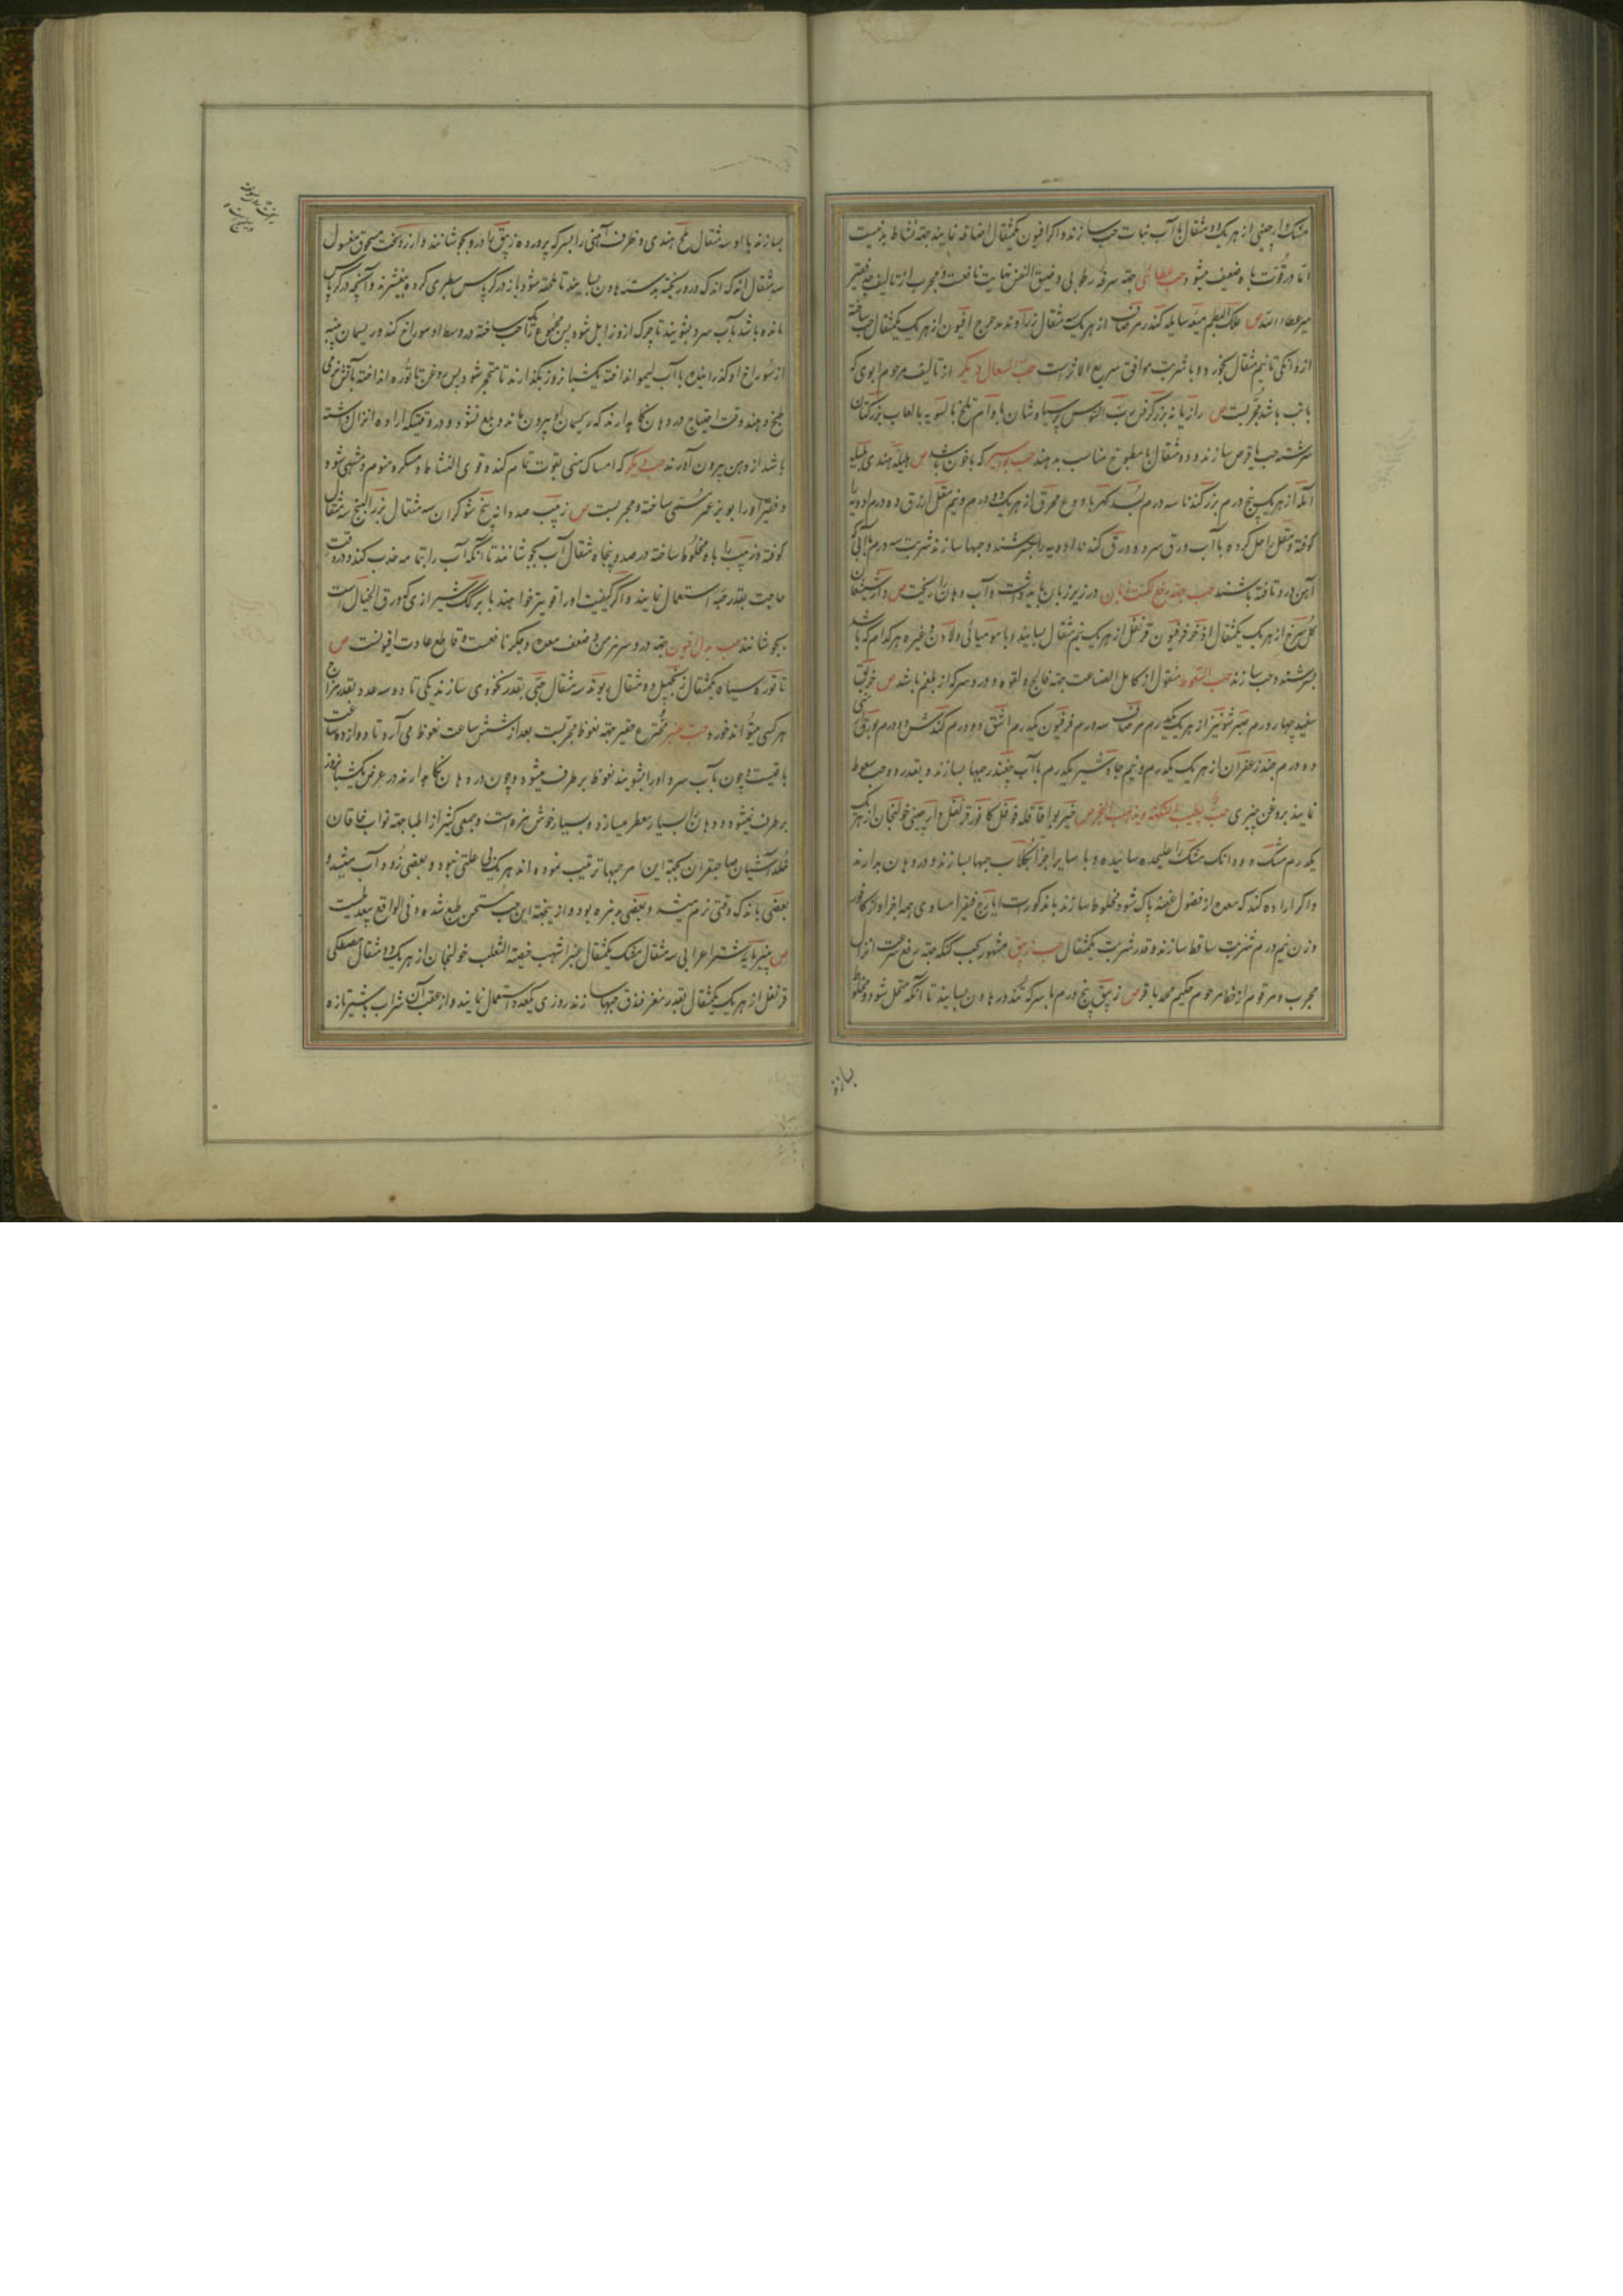 مشک دارچینی از هر یک دو مثقال با آب نبات حب سازند و اگر افیون یکمثقال اضافه نمایند جهته نشاط بد نیست
اما در قوت باه ضعیف میشود حب عطائی جهته سرفه رطوبی و ضیق النفس نهایت نافعست و مجرب از تالیف جد فقیر
میر عطاء الله ص علک البطم میعه سایله کندر مر صاف از هر یک سه مثقال زراوند مدحرج افیون از هر یک یکمثقال حب ساخته
از دانکی تا نیم مثقال بخورد و با شربت موافق سریع الاثرست حب السعال دیگر از تالیف مرحوم ابوی که
با تب باشد مجربست ص رازیانه بزر کرفس رب السوس پرسیاوشان بادام تلخ بالسویه با لعاب بزر کتان
سرشته حب یا قرص سازند و دو مثقال با مطبوخ مناسب بدهند حب بواسیر که با خون باشد ص هلیله هندی بلیله
آمله از هر یک پنج درم بزر کندنا سه درم بسد کهربا ودع محرق از هر یک دو درم و نیم مقل ازرق ده درم ادویه را
کوفته و مقل را حل کرده با آب ورق سرو و ورق کندنا ادویه را بسرشند و حبها سازند شربت سه درم با آبی که
آهن درو تافته باشند حب جهته رفع لکنت زبان در زیر زبان باید داشت و آب دهان را ریخت ص دارشیشعان
کل سرخ از هر یک یکمثقال اذخر فرفیون قرنفل از هر یک نیم مثقال بسایند و با مومیائی و لادن و غیره هر کدام که باشد
بسرشند و حب سازند حب القوط منقول از کامل الصناعت جهته فالج و لقوه و درد سر که از بلغم باشد ص خربق
سفید چهار درم صبر شونیز از هر یک یکدرم مر صاف سه درم فرفیون یکدرم اشق دو درم کندش دو درم بورق
دو درم جند زعفران از هر یک یکدرم و نیم جاوشیر یکدرم با آب چغندر حبها بسازند و بقدر دو حب سعوط
نمایند بروغن چیزی حب یطیب النکهه و یذهب البخر ص خیربوا قاقله فوفل کافور قرنفل دارچینی خولنجان از هر یک
یکدرم مشک دو دانک مشک را علیحده سائیده و با سایر اجزا بگلاب حبها بسازند و در دهان بدارند
و اگر اراده کند که معده از فضول عفنه پاک شود مخلوط سازند باندکورات ایارج فیقرا مساوی همه اجزا و از کافور
وزن نیم درم شربت ساقط سازند و قدر شربت یکمثقال حب زیبق مشهور بحب کنکه جهته رفع سرعت انزال
مجرب و مرقوم از خط مرحوم حکیم محمد باقر ص زیبق پنج درم با سرکه تند در هاون بسایند تا آنکه متحمل شود و مخلوط
بسازند
بسازند با او سه مثقال ملح هندی و ظرف آهنی را بسرکه پرورده زیبق را درو بجوشانند و از زرنیخ مسحوق مغسول
سه مثقال اندک اندک درو ریخته بدسته هاون بسایند تا حلقه شود باز در کرپاس سطبری کرده بیفشرند و آنچه در کرپاس
مانده باشد با آب سرد بشویند تا چرک ازو زایل شود پس مجموع را یک حب ساخته در وسط او سوراخ کنند و ریسمان پنبه
از سوراخ او گذرانیده با آب لیمو انداخته یکشبانروز بگذارند تا متحجر شود پس بروغن تاتوره انداخته بآتش نرمی
طبخ دهند و وقت احتیاج در دهان نگاهدارند که ریسمان او بیرون ماند و بلع نشود و در وقتیکه اراده انزال داشته
باشد از دهن بیرون آورند حب دیگر که امساک منی بقوت تمام کند و قوی النشاط و مسکر و منوم و مشهی شود
و حقیر او را بویز عمر سستی ساخته و مجربست ص زبیب صد دانه بیخ شوکران سه مثقال بزر البنج سه مثقال
کوفته و زبیب را باو مخلوط ساخته در صد و پنجاه مثقال آب بجوشانند تا آنکه آب را بتمامه جذب کند و در وقت
حاجت بقدر حبه استعمال نمایند و اگر کیفیت او را قویتر خواهند با برگ شیرازی که ورق الخیال است
بجوشانند حب بدل افیون جهته درد سر مزمن و ضعف معده و جگر نافعست و قاطع عادت افیونست ص
تاتوره سیاه یکمثقال زنجبیل دو مثقال ریوند سه مثقال حبی بقدر نخودی سازند یکی تا دو سه عدد بقدر مزاج
هر کسی میتواند خورد حب عنبر مخترع حقیر جهته نعوظ مجربست بعد از شش ساعت نعوظ می‌آرد تا دوازده ساعت
باقیست و چون بآب سرد او را بشویند نعوظ بر طرف میشود و چون در دهان نگاهدارند در عرض یکشبانروز
بر طرف نمیشود و دهان را بسیار معطر میسازد و بسیار خوش نمره است و جمعی کثیر از اطبا جهته نواب خاقان
خلد آشیان صاحبقران بجهته این امر حبها ترتیب نموده اند هر یک بی علتی نبود و بعضی زود آب میشد و
بعضی باندک وقتی نرم میشد و بعضی بدمزه بود و ازینجهته این حب مستحسن طبع شد و فی الواقع بیعدیلست
ص پنیر مایه شتر اعرابی سه مثقال مشک یکمثقال عنبر اشهب خصیة الثعلب خولنجان از هر یک دو مثقال مصطکی
قرنفل از هر یک یکمثقال بقدر مغز فندق حبها سازند روزی یکعدد استعمال نمایند و از عقب آن شراب یا شیر تازه